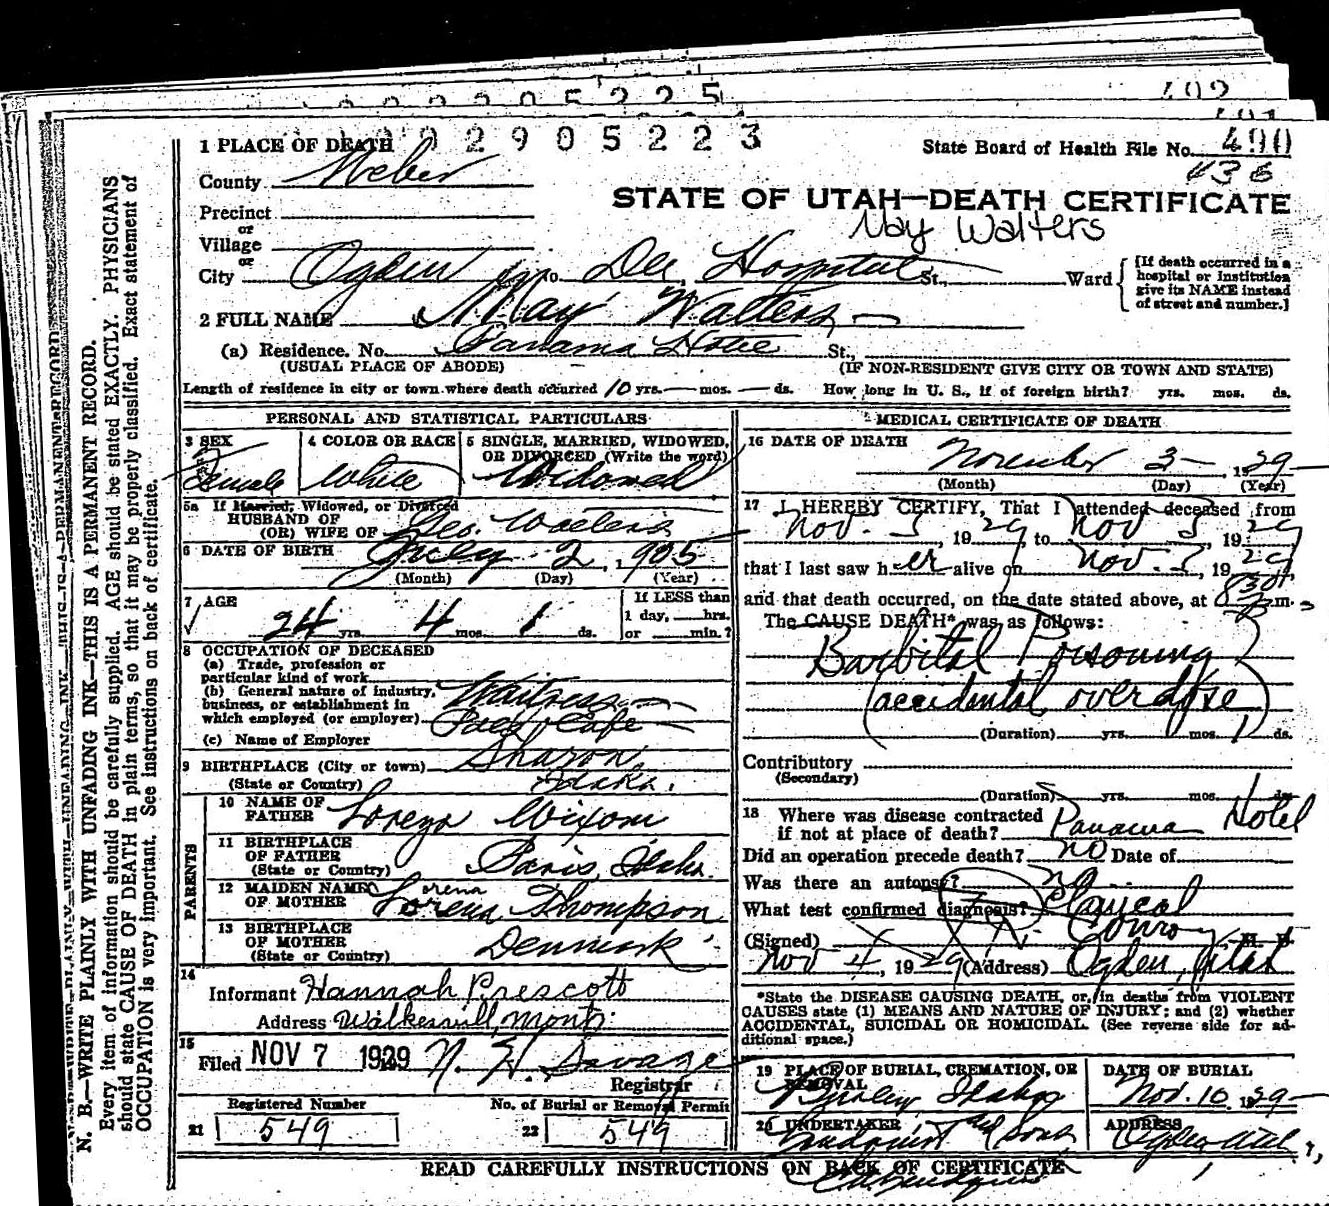 2 9 0 5 2 2 5
492
491
N. B.—WRITE PLAINLY WITH UNFADING INK—THIS IS A PERMANENT RECORD.
Every item of information should be carefully supplied. AGE should be stated EXACTLY. PHYSICIANS
should state CAUSE OF DEATH in plain terms, so that it may be properly classified. Exact statement of
OCCUPATION is very important. See instructions on back of certificate.
2 9 0 5 2 2 3
1 PLACE OF DEATH
State Board of Health File No. 490
436
County Weber
STATE OF UTAH—DEATH CERTIFICATE
Precinct
May Walters
or
Village
or
City Ogden No. Dee Hospital St., Ward
[If death occurred in a
hospital or institution
give its NAME instead
of street and number.]
2 FULL NAME May Walters
(a) Residence. No. Panama Hotel St.,
(USUAL PLACE OF ABODE) (IF NON-RESIDENT GIVE CITY OR TOWN AND STATE)
Length of residence in city or town where death occurred 10 yrs. — mos. — ds. How long in U. S., if of foreign birth? yrs. mos. ds.
PERSONAL AND STATISTICAL PARTICULARS
3 SEX
Female
4 COLOR OR RACE
White
5 SINGLE, MARRIED, WIDOWED,
OR DIVORCED (Write the word)
Widowed
5a If Married, Widowed, or Divorced
HUSBAND OF
(OR) WIFE OF Geo. Walters
6 DATE OF BIRTH July 2, 1905
(Month) (Day) (Year)
7 AGE
24 yrs. 4 mos. 1 ds.
If LESS than
1 day, hrs.
or min.?
8 OCCUPATION OF DECEASED
(a) Trade, profession or
particular kind of work
(b) General nature of industry,
business, or establishment in
which employed (or employer)
Waitress
Cafe
(c) Name of Employer
9 BIRTHPLACE (City or town) Sharon,
(State or Country) Idaho.
PARENTS
10 NAME OF
FATHER Lorenzo Wixom
11 BIRTHPLACE
OF FATHER
(State or Country) Paris, Idaho.
12 MAIDEN NAME
OF MOTHER Lorena Thompson
orena
13 BIRTHPLACE
OF MOTHER
(State or Country) Denmark
14
Informant Hannah Prescott
Address Walkerville, Mont.
15
Filed NOV 7 1929 N. H. Savage
Registrar
Registered Number
21 549
No. of Burial or Removal Permit
22 549
MEDICAL CERTIFICATE OF DEATH
16 DATE OF DEATH
November 3 — , 1929
(Month) (Day) (Year)
17 I HEREBY CERTIFY, That I attended deceased from
Nov. 3, 1929, to Nov 3, 1929
that I last saw her alive on Nov. 3, 1929
and that death occurred, on the date stated above, at 830 m.
The CAUSE DEATH* was as follows:
Barbital Poisoning
(accidental overdose)
(Duration) yrs. mos. 1 ds.
Contributory
(Secondary)
(Duration) yrs. mos. ds.
18 Where was disease contracted
if not at place of death? Panama Hotel
Did an operation precede death? no Date of
Was there an autopsy? no
What test confirmed diagnosis? Clinical
(Signed) Conroy, M. D.
Nov 4, 1929 (Address) Ogden, Utah
*State the DISEASE CAUSING DEATH, or, in deaths from VIOLENT
CAUSES state (1) MEANS AND NATURE OF INJURY; and (2) whether
ACCIDENTAL, SUICIDAL OR HOMICIDAL. (See reverse side for ad-
ditional space.)
19 PLACE OF BURIAL, CREMATION, OR
REMOVAL
Burley, Idaho
DATE OF BURIAL
Nov. 10, 1929
20 UNDERTAKER
Lindquist and Sons
ADDRESS
Ogden, Utah
READ CAREFULLY INSTRUCTIONS ON BACK OF CERTIFICATE